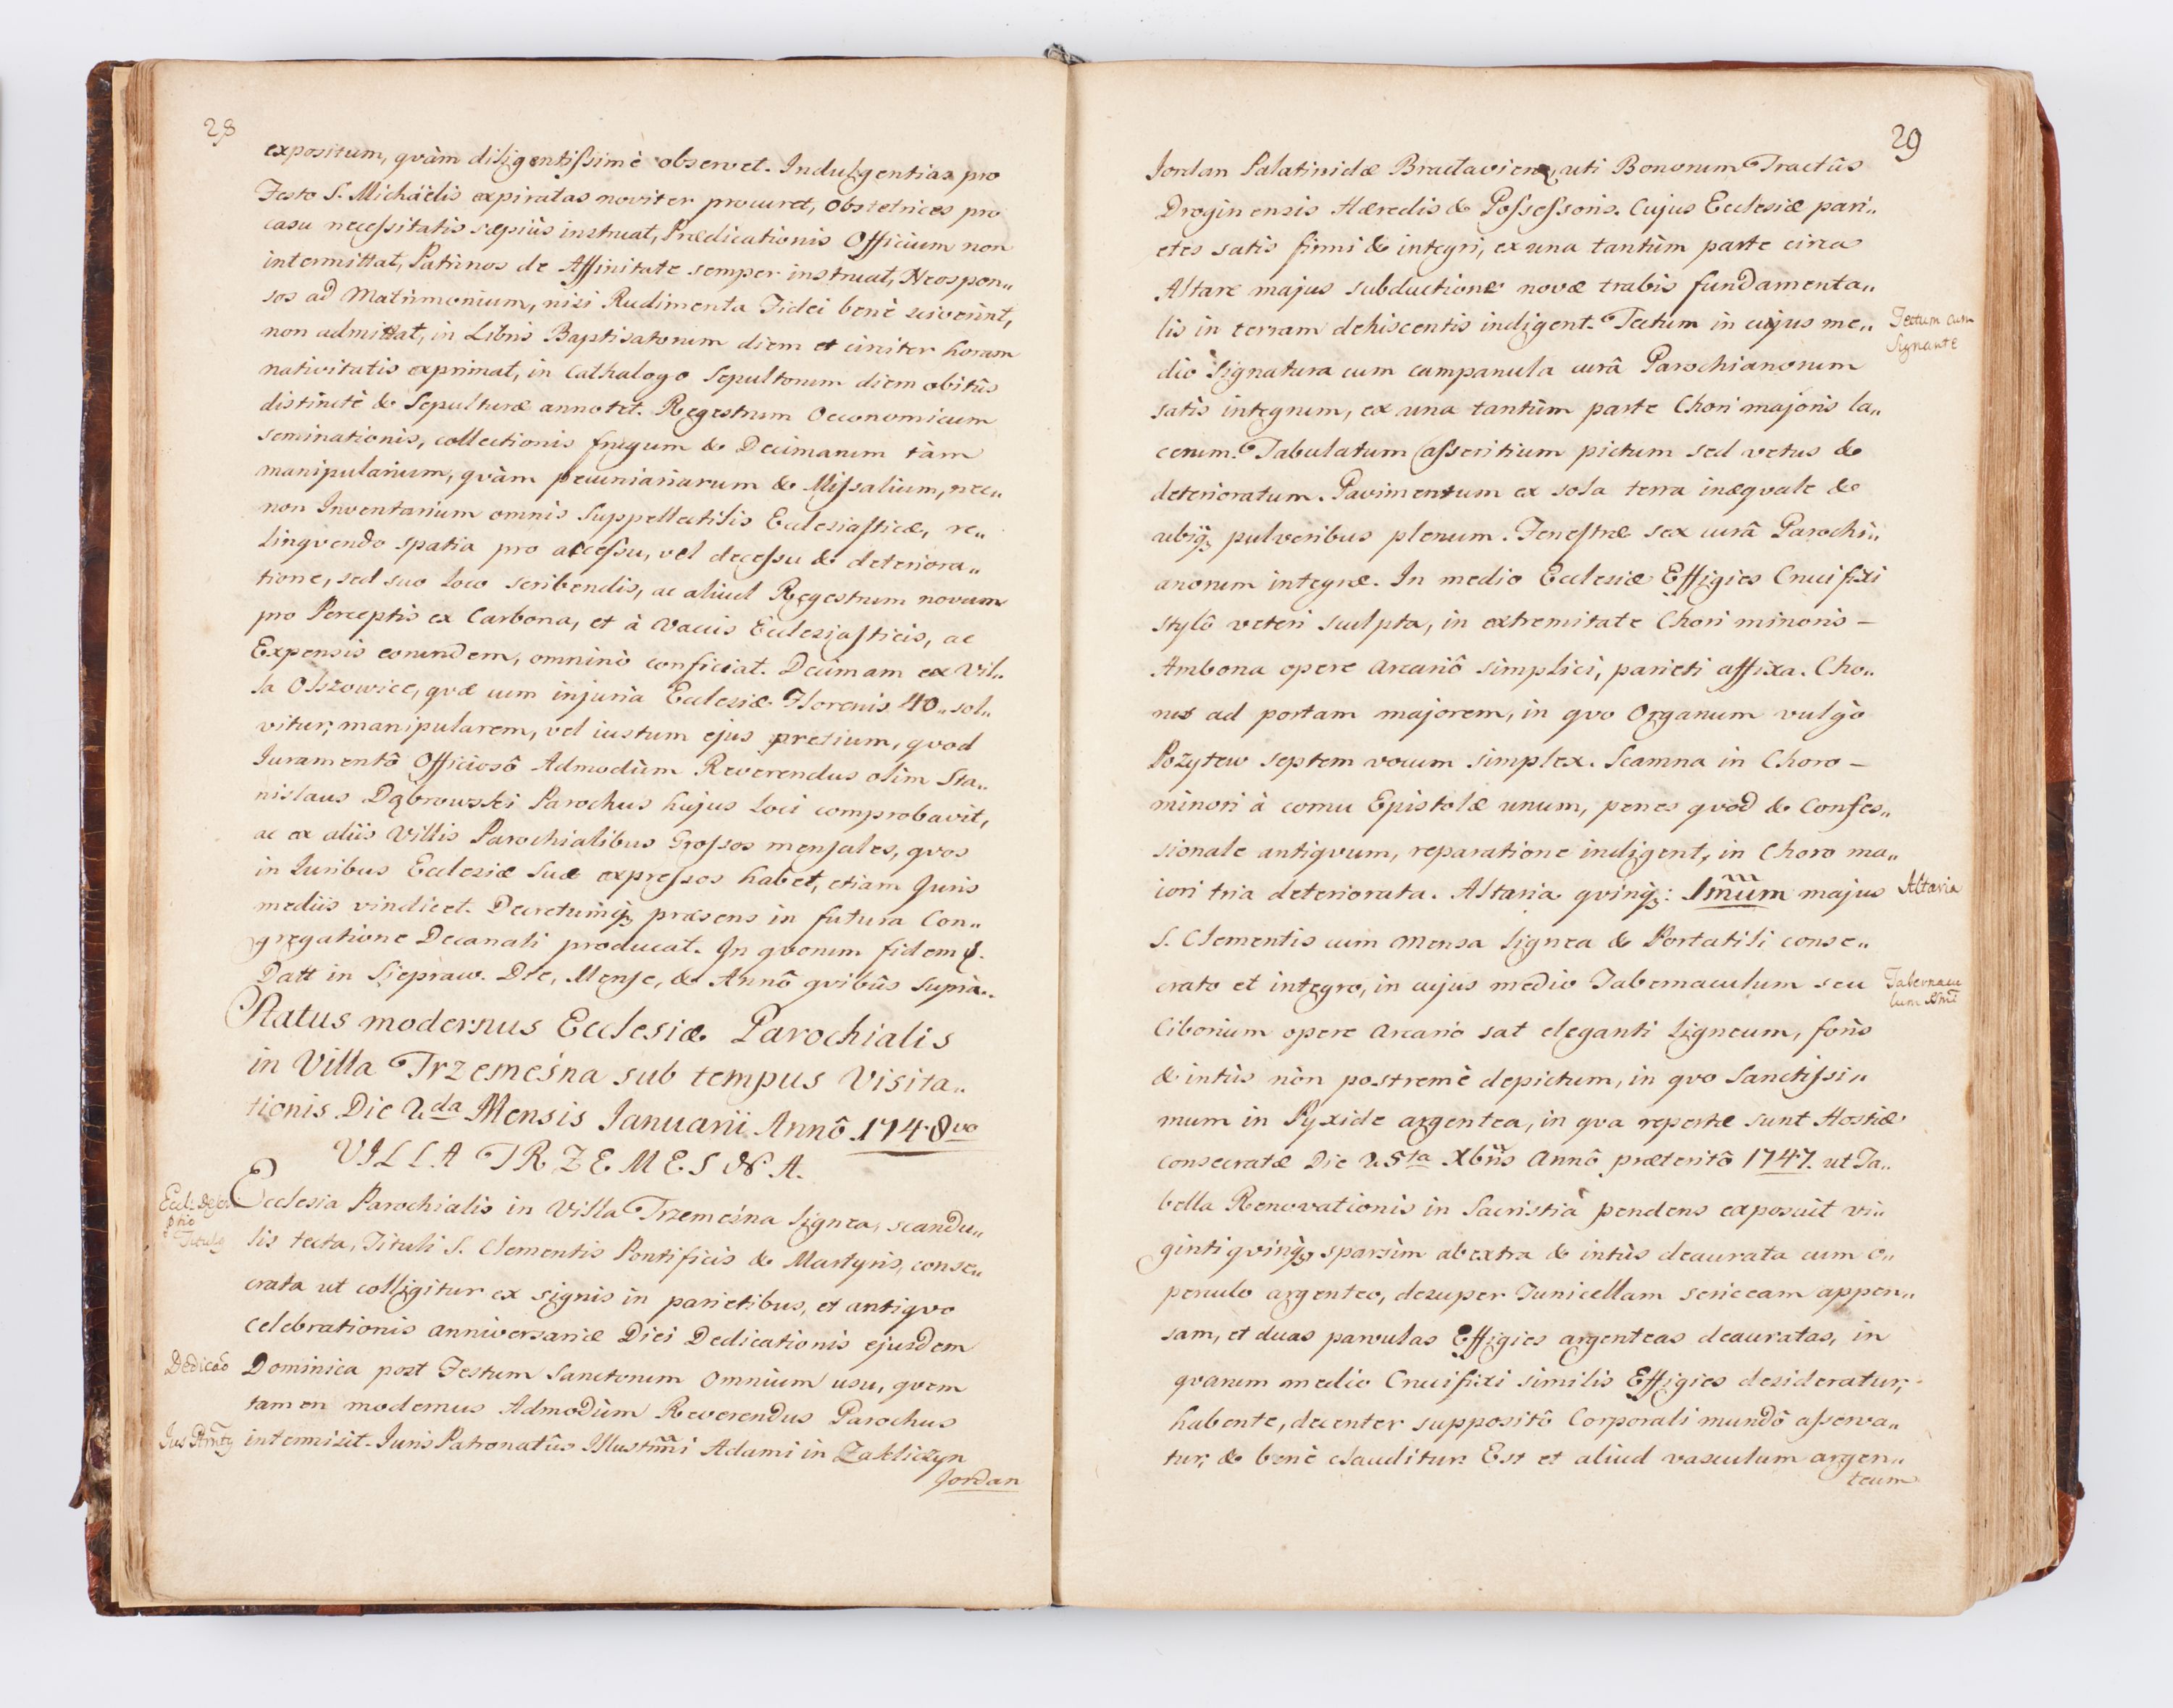 28
expositum, qvàm diligentissimè observet. Indulgentias pro
Festo S. Michäelis expiratas noviter procuret, Obstetrices pro
casu necessitatis sæpiùs instruat, Prædicationis Officium non
intermittat, Patrinos de Affinitate semper instruat, Neospon„
sos ad Matrimonium, nisi Rudimenta Fidei benè sciverint,
non admittat, in Libris Baptisatorum diem et circiter horam
nativitatis exprimat, in Cathalogo Sepultorum diem obitûs
distinctè & Sepulturæ annotet. Regestrum Oeconomicum
seminationis, collectionis frugum & Decimarum tàm
manipularium, qvàm pecuniariarum & Missalium, nec„
non Inventarium omnis Suppellectilis Ecclesiasticæ, re„
linqvendo spatia pro accessu, vel decessu & deteriora„
tione, sed suo loco scribendis, ac aliud Regestrum novum
pro Perceptis ex Carbona, et à Vaccis Ecclesiasticis, ac
Expensis eorundem, omninò conficiat. Decimam ex Vil„
la Olszowice, qvæ cum injuria Ecclesiæ Florenis 40„ sol„
vitur, manipularem, vel iustum ejus pretium, qvod
Iuramentô Officiosô Admodùm Reverendus olim Sta„
nislaus Dąbrowski Parochus hujus loci comprobavit,
ac ex aliis Villis Parochialibus Grossos mensales, qvos
in Iuribus Ecclesiæ Suæ expressos habet, etiam Juris
mediis vindicet. Decretumq; præsens in futura Con„
gregatione Decanali producat. In qvorum fidem &.
Datt in Siepraw. Die, Mense, & Annô qvibûs Supià..
Status modernus Ecclesiæ Parochialis
in Villa Trzemeśna sub tempus Visita„
tionis Die 2da Mensis Ianuarii Annô 1748vo
VILLA TRZEMESNA.
Ecclesia Parochialis in Villa Trzemeśna lignea, scandu„
lis tecta, Tituli S. Clementis Pontificis & Martyris, conse„
crata ut colligitur ex signis in parietibus, et antiqvo
celebrationis anniversariæ Diei Dedicationis ejusdem
Dedicao
Dominica post Festum Sanctorum Omnium usu, qvem
tamen modernus Admodùm Reverendus Parochus
Ius Prntq
intermisit. Iuris Patronatûs Illustmi Adami in Zakliczyn
Jordan
29
Iordan Palatinidæ Braclavien, uti Bonorum Tractûs
Droginensis Hæredis & Possessoris. Cujus Ecclesiæ pari„
etes satis firmi & integri, ex una tantùm parte circa
Altare majus subductione novæ trabis fundamenta„
lis in terram dehiscentis indigent. Tectum in cujus me„
Tectum cum
Signante
dio Signatura cum campanula curâ Parochianorum
satis integrum, ex una tantùm parte Chori majoris la„
cerum. Tabulatum asseritium pictum sed vetus &
deterioratum. Pavimentum ex sola terra inæqvale &
ubiq; pulveribus plenum. Fenestræ sex curâ Parochi„
anorum integræ. In medio Ecclesiæ Effigies Crucifixi
stylô veteri sculpta, in extremitate Chori minoris –
Ambona opere arcariô simplici, parieti affixa. Cho„
rus ad portam majorem, in qvo Organum vulgò
Pozytew septem vocum simplex. Scamna in Choro –
minori à cornu Epistolæ unum, penes qvod & Confes„
sionale antiqvum, reparatione indigent, in Choro ma„
iori tria deteriorata. Altaria qvinq;: 1mum majus
Altaria
S. Clementis cum mensa lignea & Portatili conse„
crato et integro, in cujus medio Tabernaculum seu
Tabernacu
lum Smi
Ciborium opere arcariò sat eleganti ligneum, foris
& intùs nòn postremè depictum, in qvo Sanctissi„
mum in Pyxide argentea, in qva repertæ sunt Hostiæ
consecratæ Die 25ta Xbris Annô præteritô 1747. ut Ta„
bella Renovationis in Sacristiâ pendens exposuit vi„
ginti qvinq; sparsim ab extra & intùs deaurata cum o„
perculo argenteo, desuper Tunicellam sericeam appen„
sam, et duas parvulas Effigies argenteas deauratas, in
qvarum medio Crucifixi similis Effigies desideratur,
habente, decenter suppositô Corporali mundô asserva„
tur, & benè clauditur. Est et aliud vasculum argen„
teum